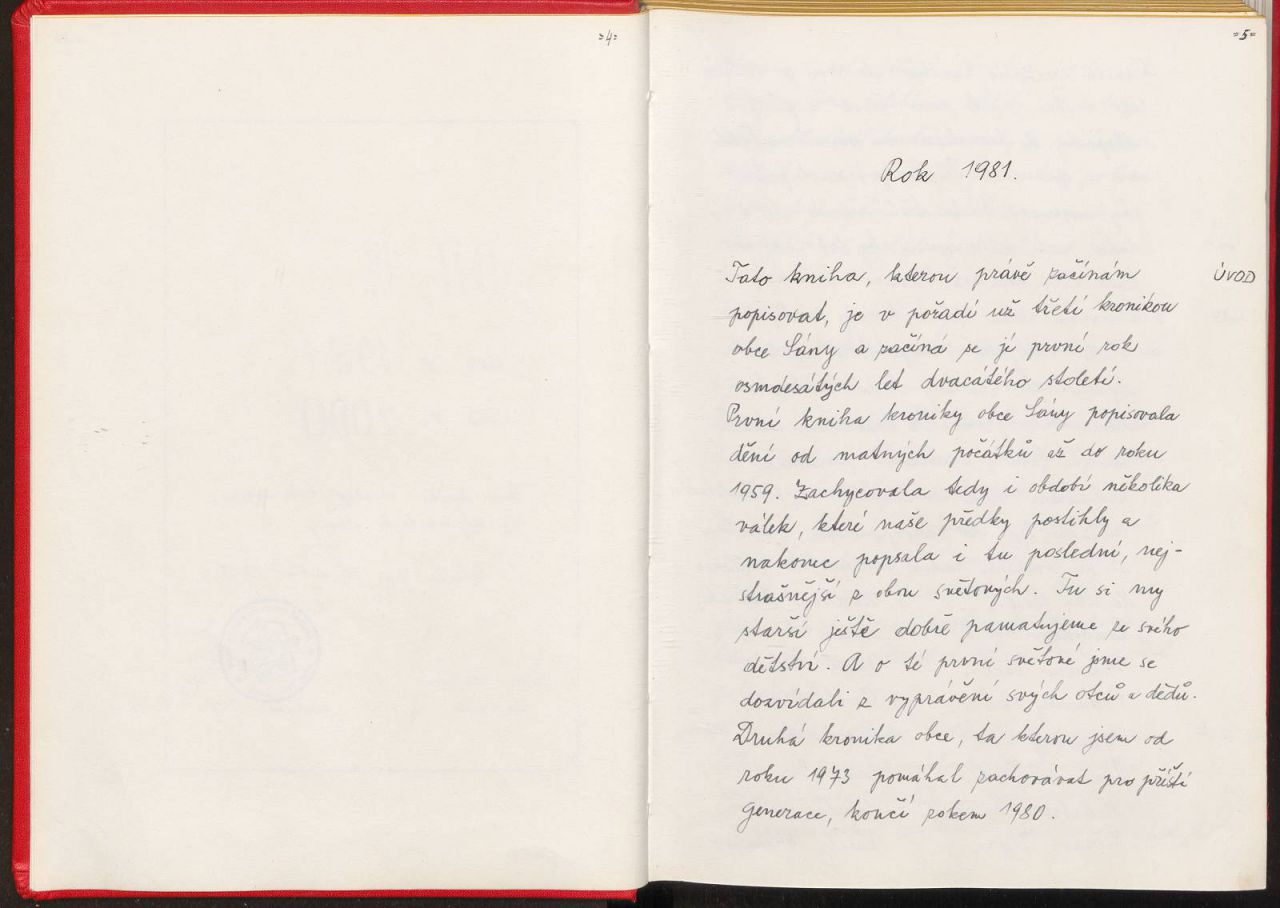 =4=
=5=
Rok 1981.
ÚVOD
Tato kniha, kterou právě začínám
popisovat, je v pořadí už třetí kronikou
obce Sány a začíná se jí první rok
osmdesátých let dvacátého století.
První kniha kroniky obce Sány popisovala
dění od matných počátků až do roku
1959. Zachycovala tedy i období několika
válek, které naše předky postihly a
nakonec popsala i tu poslední, nej-
strašnější z obou světových. Tu si my
starší ještě dobře pamatujeme ze svého
dětství. A o té první světové jsme se
dozvídali z vyprávění svých otců a dědů.
Druhá kronika obce, ta kterou jsem od
roku 1973 pomáhal zachovávat pro příští
generace, končí rokem 1980.